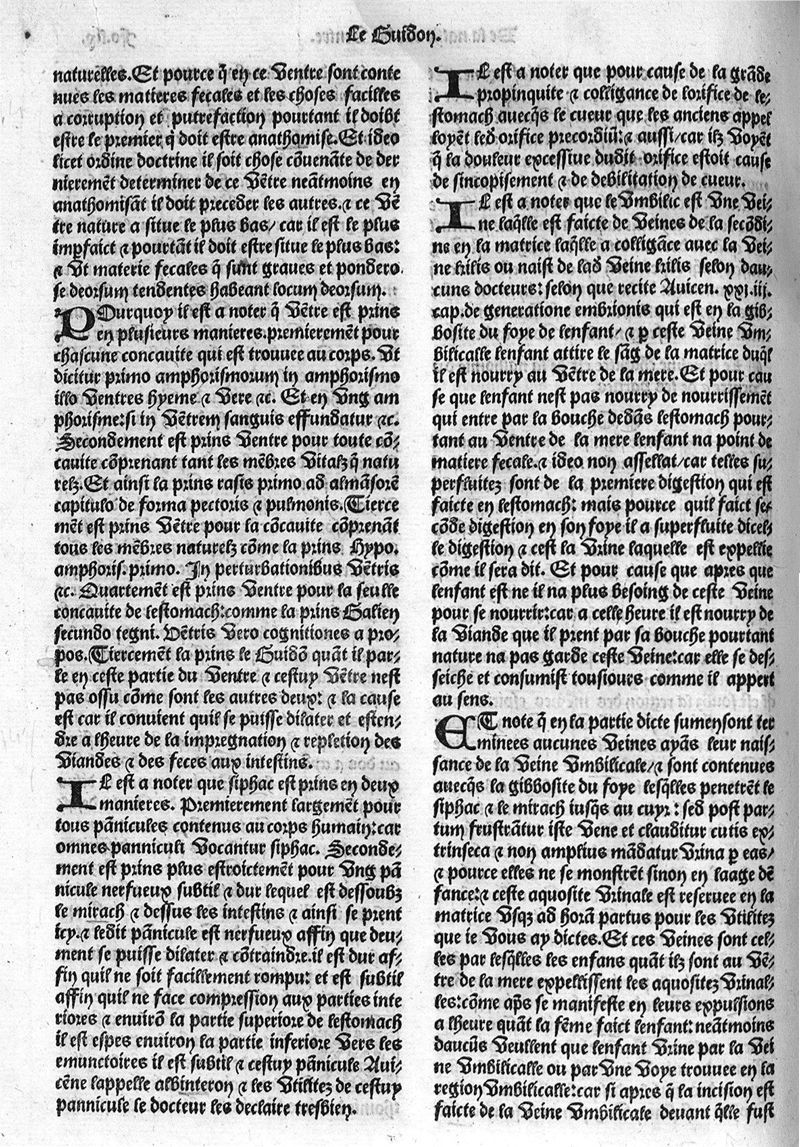 Le Guidon.
naturelles. Et pource q̃ en ce Ventre sont conte
nues les matieres fecales et les choses facilles
a corruption et putrefaction pourtant il doibt
estre le premier q̃ doit estre anathomise. Et ideo
licet ordine doctrine il soit chose cõuenãte de der
nieremẽt determiner de ce Vẽtre neãtmoins en
anathomisãt il doit preceder les autres. ⁊ ce Vẽ
tre nature a situe le plus bas/ car il est le plus
imp̃faict ⁊ pourtãt il doit estre situe le plus bas:
⁊ Vt materie fecales q̃ sunt graues et pondero.
se deorsum tendentes habeant locum deorsum.
POurquoy il est a noter q̃ Vẽtre est prins
en plusieurs manieres. premieremẽt pour
chascune concauite qui est trouuee au corps. Vt
dicitur primo amphorismorum in amphorismo
illo Ventres hyeme ⁊ Vere ⁊c. Et en Vng am
phorisme: si in Vẽtrem sanguis effundatur ⁊c.
Secondement est prins Ventre pour toute cõ-
cauite cõprenant tant les mẽbres Vitalz q̃ natu
relz. Et ainsi la prins rasis primo ad almãsorẽ
capitulo de forma pectoris ⁊ pulmonis. Tierce
mẽt est prins Vẽtre pour la cõcauite cõprenãt
tous les mẽbres naturelz cõme la prins Hypo.
amphoris. primo. In perturbationibus Vẽtris
⁊c. Quartemẽt est prins Ventre pour la seulle
concauite de lestomach: comme la prins Galien
secundo tegni. Vẽtris Vero cognitiones a pro-
pos. Tiercemẽt la prins le Guidõ quãt il par-
le en ceste partie du Ventre ⁊ cestuy Vẽtre nest
pas ossu cõme sont les autres deux: ⁊ la cause
est car il conuient quil se puisse dilater et esten-
dre a lheure de la impregnation ⁊ repletion des
Viandes ⁊ des feces aux intestins.
IL est a noter que siphac est prins en deux
manieres. Premierement largemẽt pour
tous pãnicules contenus au corps humain: car
omnes panniculi Vocantur siphac. Seconde-
ment est prins plus estroictemẽt pour Vng pã
nicule nerfueux subtil ⁊ dur lequel est dessoubz
le mirach ⁊ dessus les intestins ⁊ ainsi se prent
icy. ⁊ ledit pãnicule est nerfueux affin que deu-
ment se puisse dilater ⁊ cõtraindre. il est dur af-
fin quil ne soit facillement rompu: et est subtil
affin quil ne face compression aux parties inte
riores ⁊ enuirõ la partie superiore de lestomach
il est espes enuiron la partie inferiore Vers les
emunctoires il est subtil ⁊ cestuy pãnicule Aui-
cẽne lappelle albinteron ⁊ les Vtilitez de cestuy
pannicule le docteur les declaire tresbien.
IL est a noter que pour cause de la grãde
propinquite ⁊ colligance de lorifice de le-
stomach auecq̃s le cueur que les anciens appel
loyẽt led orifice precordiũ: ⁊ aussi/ car ilz Voyẽt
q̃ la douleur excessiue dudit orifice estoit cause
de sincopisement ⁊ de debilitation de cueur.
IL est a noter que le Vmbilic est Vne Vei-
ne laq̃lle est faicte de Veines de la secõdi-
ne en la matrice laq̃lle a colligãce auec la Vei-
ne kilis ou naist de lad Veine kilis selon dau-
cuns docteurs: selon que recite Auicen. xxi. iii.
cap. de generatione embrionis qui est en la gib-
bosite du foye de lenfant/ ⁊ p̱ ceste Veine Vm-
bilicalle lenfant attire le sãg de la matrice duq̃l
il est nourry au Vẽtre de la mere. Et pour cau
se que lenfant nest pas nourry de nourrissemẽt
qui entre par la bouche dedãs lestomach pour-
tant au Ventre de la mere lenfant na point de
matiere fecale. ⁊ ideo non assellat/ car telles su-
perfluitez sont de la premiere digestion qui est
faicte en lestomach: mais pource quil faict se-
cõde digestion en son foye il a superfluite dicel-
le digestion ⁊ cest la Vrine laquelle est expellie
cõme il sera dit. Et pour cause que apres que
lenfant est ne il na plus besoing de ceste Veine
pour se nourrir: car a celle heure il est nourry de
la Viande que il prent par sa bouche pourtant
nature na pas garde ceste Veine: car elle se des-
seiche et consumist tousiours comme il appert
au sens.
ET note q̃ en la partie dicte sumen sont ter
minees aucunes Veines ayãs leur nais-
sance de la Veine Vmbilicale/ ⁊ sont contenues
auecq̃s la gibbosite du foye lesq̃lles penetrẽt le
siphac ⁊ le mirach iusq̃s au cuyr: sed post par-
tum frustrãtur iste Vene et clauditur cutis ex-
trinseca ⁊ non amplius mãdatur Vrina p̱ eas/
⁊ pource elles ne se monstrẽt sinon en laage dẽ
fance: ⁊ ceste aquosite Vrinale est reseruee en la
matrice Vsq̃ ad horã partus pour les Vtilitez
que ie Vous ay dictes. Et ces Veines sont cel-
les par lesq̃lles les enfans quãt ilz sont au Vẽ-
tre de la mere expellissent les aquositez Vrinal-
les: cõme ap̃s se manifeste en leurs expulsions
a lheure quãt la fẽme faict lenfant: neãtmoins
daucũs Veullent que lenfant Vrine par la Vei
ne Vmbilicalle ou par Vne Voye trouuee en la
region Vmbilicalle: car si apres q̃ la incision est
faicte de la Veine Vmbilicale deuant q̃lle fust